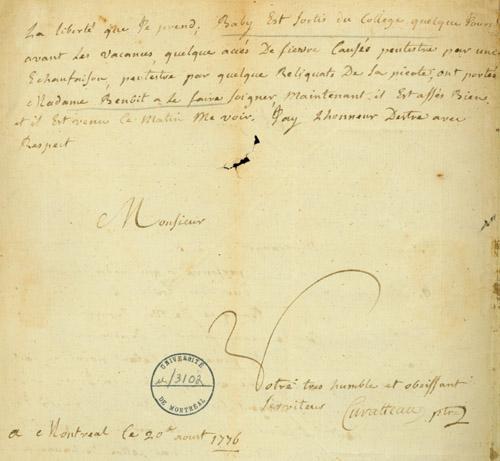 La liberté que Je prend; Baby Est sortis du College quelque Jours
avant Les vacances, quelque accés De fievre Causés peutestre par une
Echaufaison, peutestre par quelque Reliquats De La picote, ont portés
Madame Benôit a le faire soigner, Maintenant il Est assés Bien
et il Est venu Ce Matin Me voir. J'ay L'honneur D'estre avec
Respect
Monsieur
Votre tres humble et obeissant
serviteur Curatteau ptre
UNIVERSITÉ
u/3102
DE MONTRÉAL
a Montreal Ce 20e aoust 1776